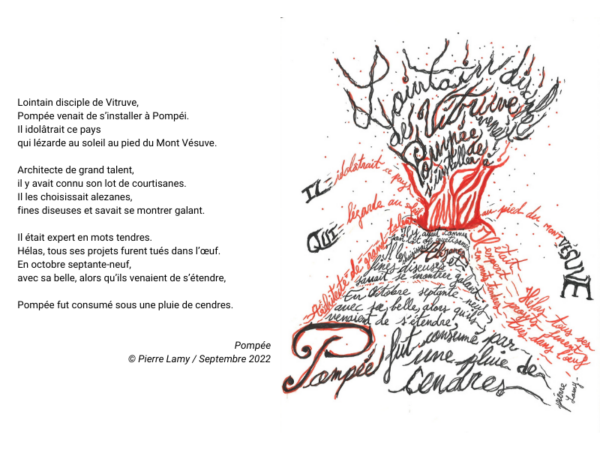 Lointain disciple de Vitruve,
Pompée venait de s'installer à Pompéi.
Il idolâtrait ce pays
qui lézarde au soleil au pied du Mont Vésuve.
Architecte de grand talent,
il y avait connu son lot de courtisanes.
Il les choisissait alezanes,
fines diseuses et savait se montrer galant.
Il était expert en mots tendres.
Hélas, tous ses projets furent tués dans l'œuf.
En octobre septante-neuf,
avec sa belle, alors qu'ils venaient de s'étendre,
Pompée fut consumé sous une pluie de cendres.
Pompée
© Pierre Lamy / Septembre 2022
Lointain dis
de Vitruve
Pompée
venait
de
s'installer à
IL idolâtrait ce pays
QUI lézarde au
au pied du Mont
VÉSUVE
Architecte de grand talent
Il y avait connu
son lot de courtisanes
Il les
fines diseuses et
savait se montrer galant
Il était
expert
en mots tendres
Hélas tous ses
projets furent
tués dans l'œuf
En octobre septante-neuf
avec sa belle, alors qu'ils
venaient de s'étendre,
Pompée fut consumé par
une pluie de
Cendres
pierre
Lamy